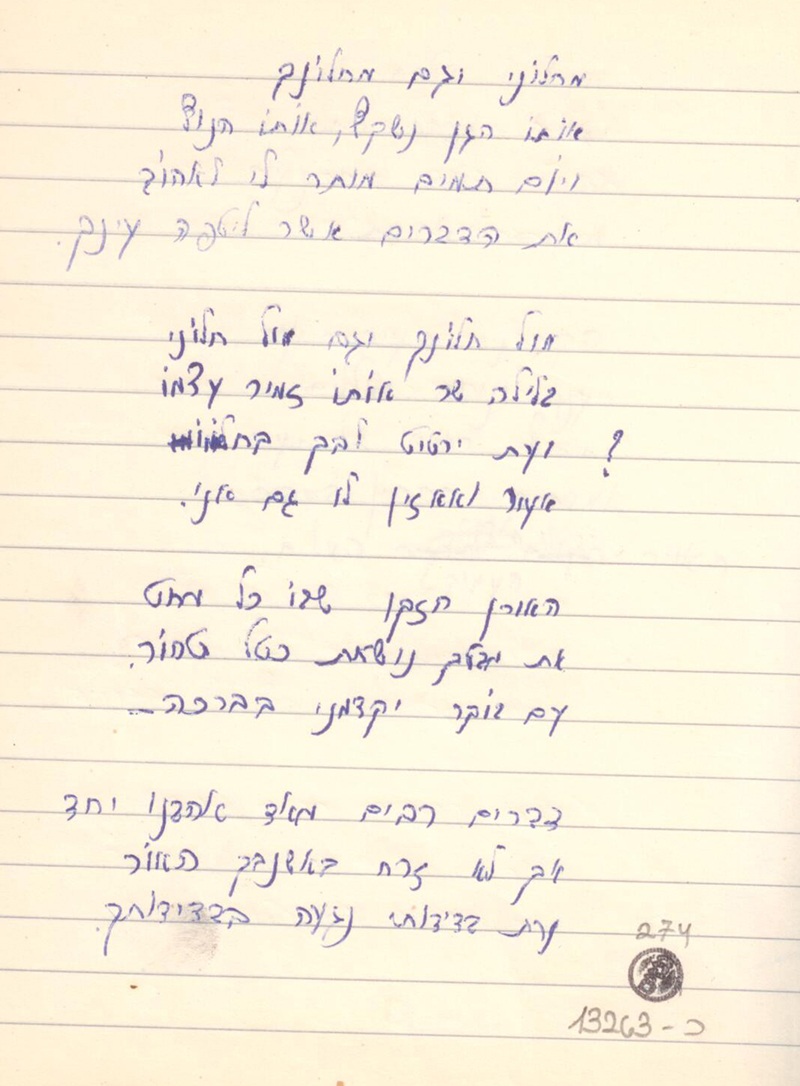 מחלוני וגם מחלונך
אותו הגן נשקף, אותו הנוף
ויום תמים מותר לי לאהוב
את הדברים אשר ליטפה עינך.
מול חלונך וגם מול חלוני
בלילה שר אותו זמיר עצמו
ועת ירטיט לבך בחלומו ?
אעור ואאזין לו גם אני.
האורן הזקן שבו כל מחט
את מבטך נושאת כטל טהור.
עם בוקר יקדמני בברכה –
דברים רבים מאד אהבנו יחד
אך לא זרח באשנבך האור
עת בדידותי נגעה בבדידותך.
274
13263 - כ